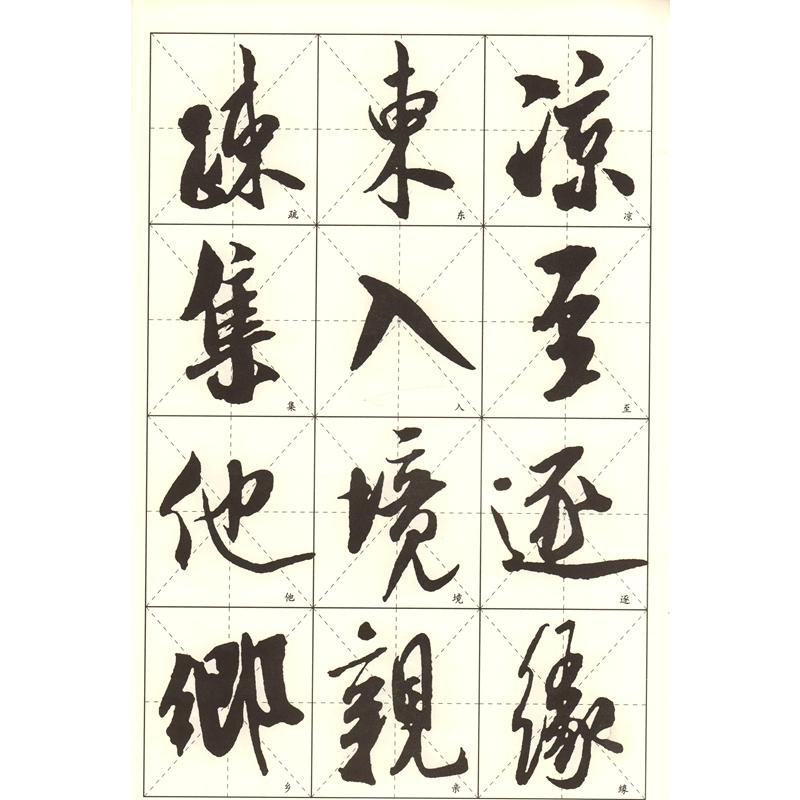 凉至逐緣
凉至逐缘
東入境親
东入境亲
疎集他鄉
疏集他乡